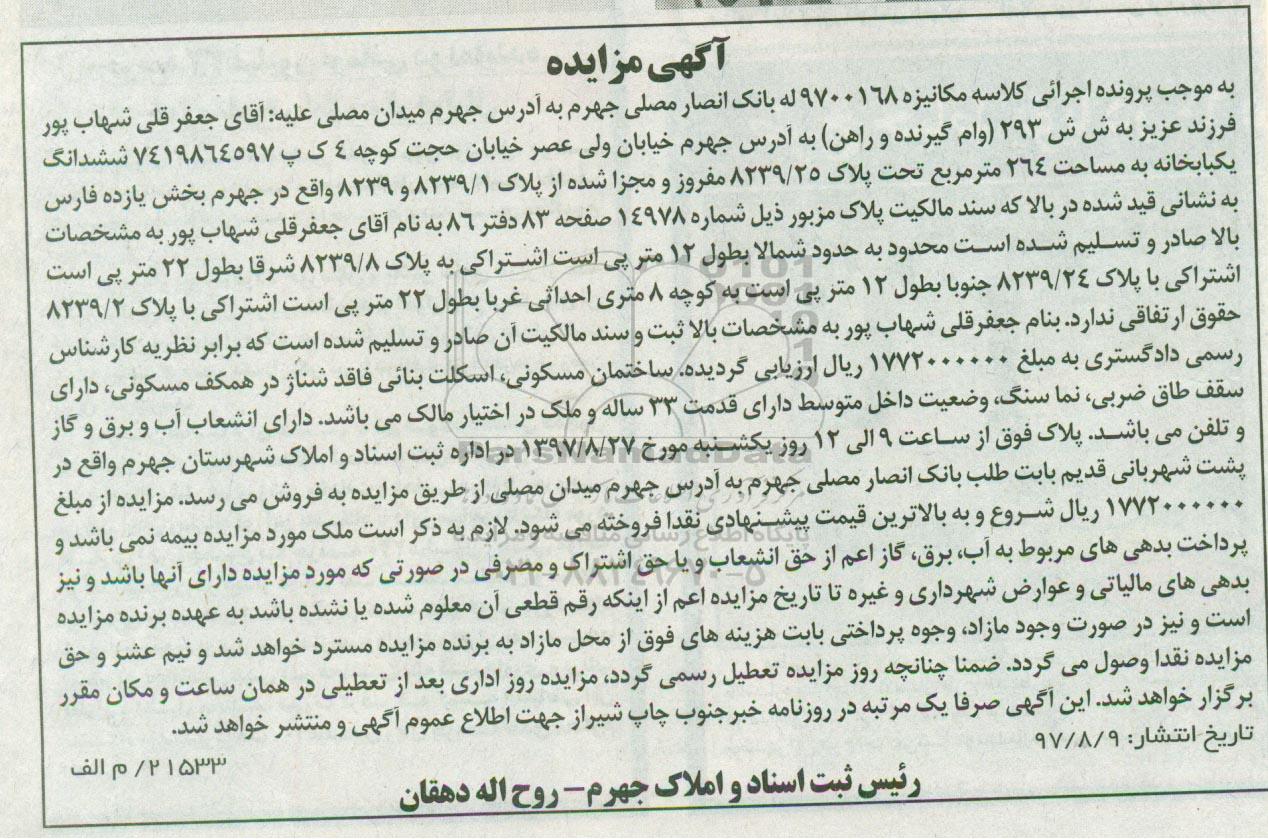 آگهی مزایده
به موجب پرونده اجرائی کلاسه مکانیزه ۹۷۰۰۱۶۸ له بانک انصار مصلی جهرم به آدرس جهرم میدان مصلی علیه: آقای جعفر قلی شهاب پور
فرزند عزیز به ش ش ۲۹۳ (وام گیرنده و راهن) به آدرس جهرم خیابان ولی عصر خیابان حجت کوچه ٤ ک پ ۷٤۱۹۸٦٤٥۹۷ ششدانگ
یکبابخانه به مساحت ۲٦٤ مترمربع تحت پلاک ۸۲۳۹/۲٥ مفروز و مجزا شده از پلاک ۸۲۳۹/۱ و ۸۲۳۹ واقع در جهرم بخش یازده فارس
به نشانی قید شده در بالا که سند مالکیت پلاک مزبور ذیل شماره ۱٤۹۷۸ صفحه ۸۳ دفتر ۸٦ به نام آقای جعفرقلی شهاب پور به مشخصات
بالا صادر و تسلیم شده است محدود به حدود شمالا بطول ۱۲ متر پی است اشتراکی به پلاک ۸۲۳۹/۸ شرقا بطول ۲۲ متر پی است
اشتراکی با پلاک ۸۲۳۹/۲٤ جنوبا بطول ۱۲ متر پی است به کوچه ۸ متری احداثی غربا بطول ۲۲ متر پی است اشتراکی با پلاک ۸۲۳۹/۲
حقوق ارتفاقی ندارد. بنام جعفرقلی شهاب پور به مشخصات بالا ثبت و سند مالکیت آن صادر و تسلیم شده است که برابر نظریه کارشناس
رسمی دادگستری به مبلغ ۱۷۷۲۰۰۰۰۰۰ ریال ارزیابی گردیده. ساختمان مسکونی، اسکلت بنائی فاقد شناژ در همکف مسکونی، دارای
سقف طاق ضربی، نما سنگ، وضعیت داخل متوسط دارای قدمت ۳۳ ساله و ملک در اختیار مالک می باشد. دارای انشعاب آب و برق و گاز
و تلفن می باشد. پلاک فوق از ساعت ۹ الی ۱۲ روز یکشنبه مورخ ۱۳۹۷/۸/۲۷ در اداره ثبت اسناد و املاک شهرستان جهرم واقع در
پشت شهربانی قدیم بابت طلب بانک انصار مصلی جهرم به آدرس جهرم میدان مصلی از طریق مزایده به فروش می رسد. مزایده از مبلغ
۱۷۷۲۰۰۰۰۰۰ ریال شروع و به بالاترین قیمت پیشنهادی نقدا فروخته می شود. لازم به ذکر است ملک مورد مزایده بیمه نمی باشد و
پرداخت بدهی های مربوط به آب، برق، گاز اعم از حق انشعاب و یا حق اشتراک و مصرفی در صورتی که مورد مزایده دارای آنها باشد و نیز
بدهی های مالیاتی و عوارض شهرداری و غیره تا تاریخ مزایده اعم از اینکه رقم قطعی آن معلوم شده یا نشده باشد به عهده برنده مزایده
است و نیز در صورت وجود مازاد، وجوه پرداختی بابت هزینه های فوق از محل مازاد به برنده مزایده مسترد خواهد شد و نیم عشر و حق
مزایده نقدا وصول می گردد. ضمنا چنانچه روز مزایده تعطیل رسمی گردد، مزایده روز اداری بعد از تعطیلی در همان ساعت و مکان مقرر
برگزار خواهد شد. این آگهی صرفا یک مرتبه در روزنامه خبرجنوب چاپ شیراز جهت اطلاع عموم آگهی و منتشر خواهد شد.
تاریخ انتشار: ۹۷/۸/۹
۲۱۵۳۳/ م الف
رئیس ثبت اسناد و املاک جهرم – روح اله دهقان
ParsNamadData
پایگاه اطلاع رسانی مناقصه و مزایده